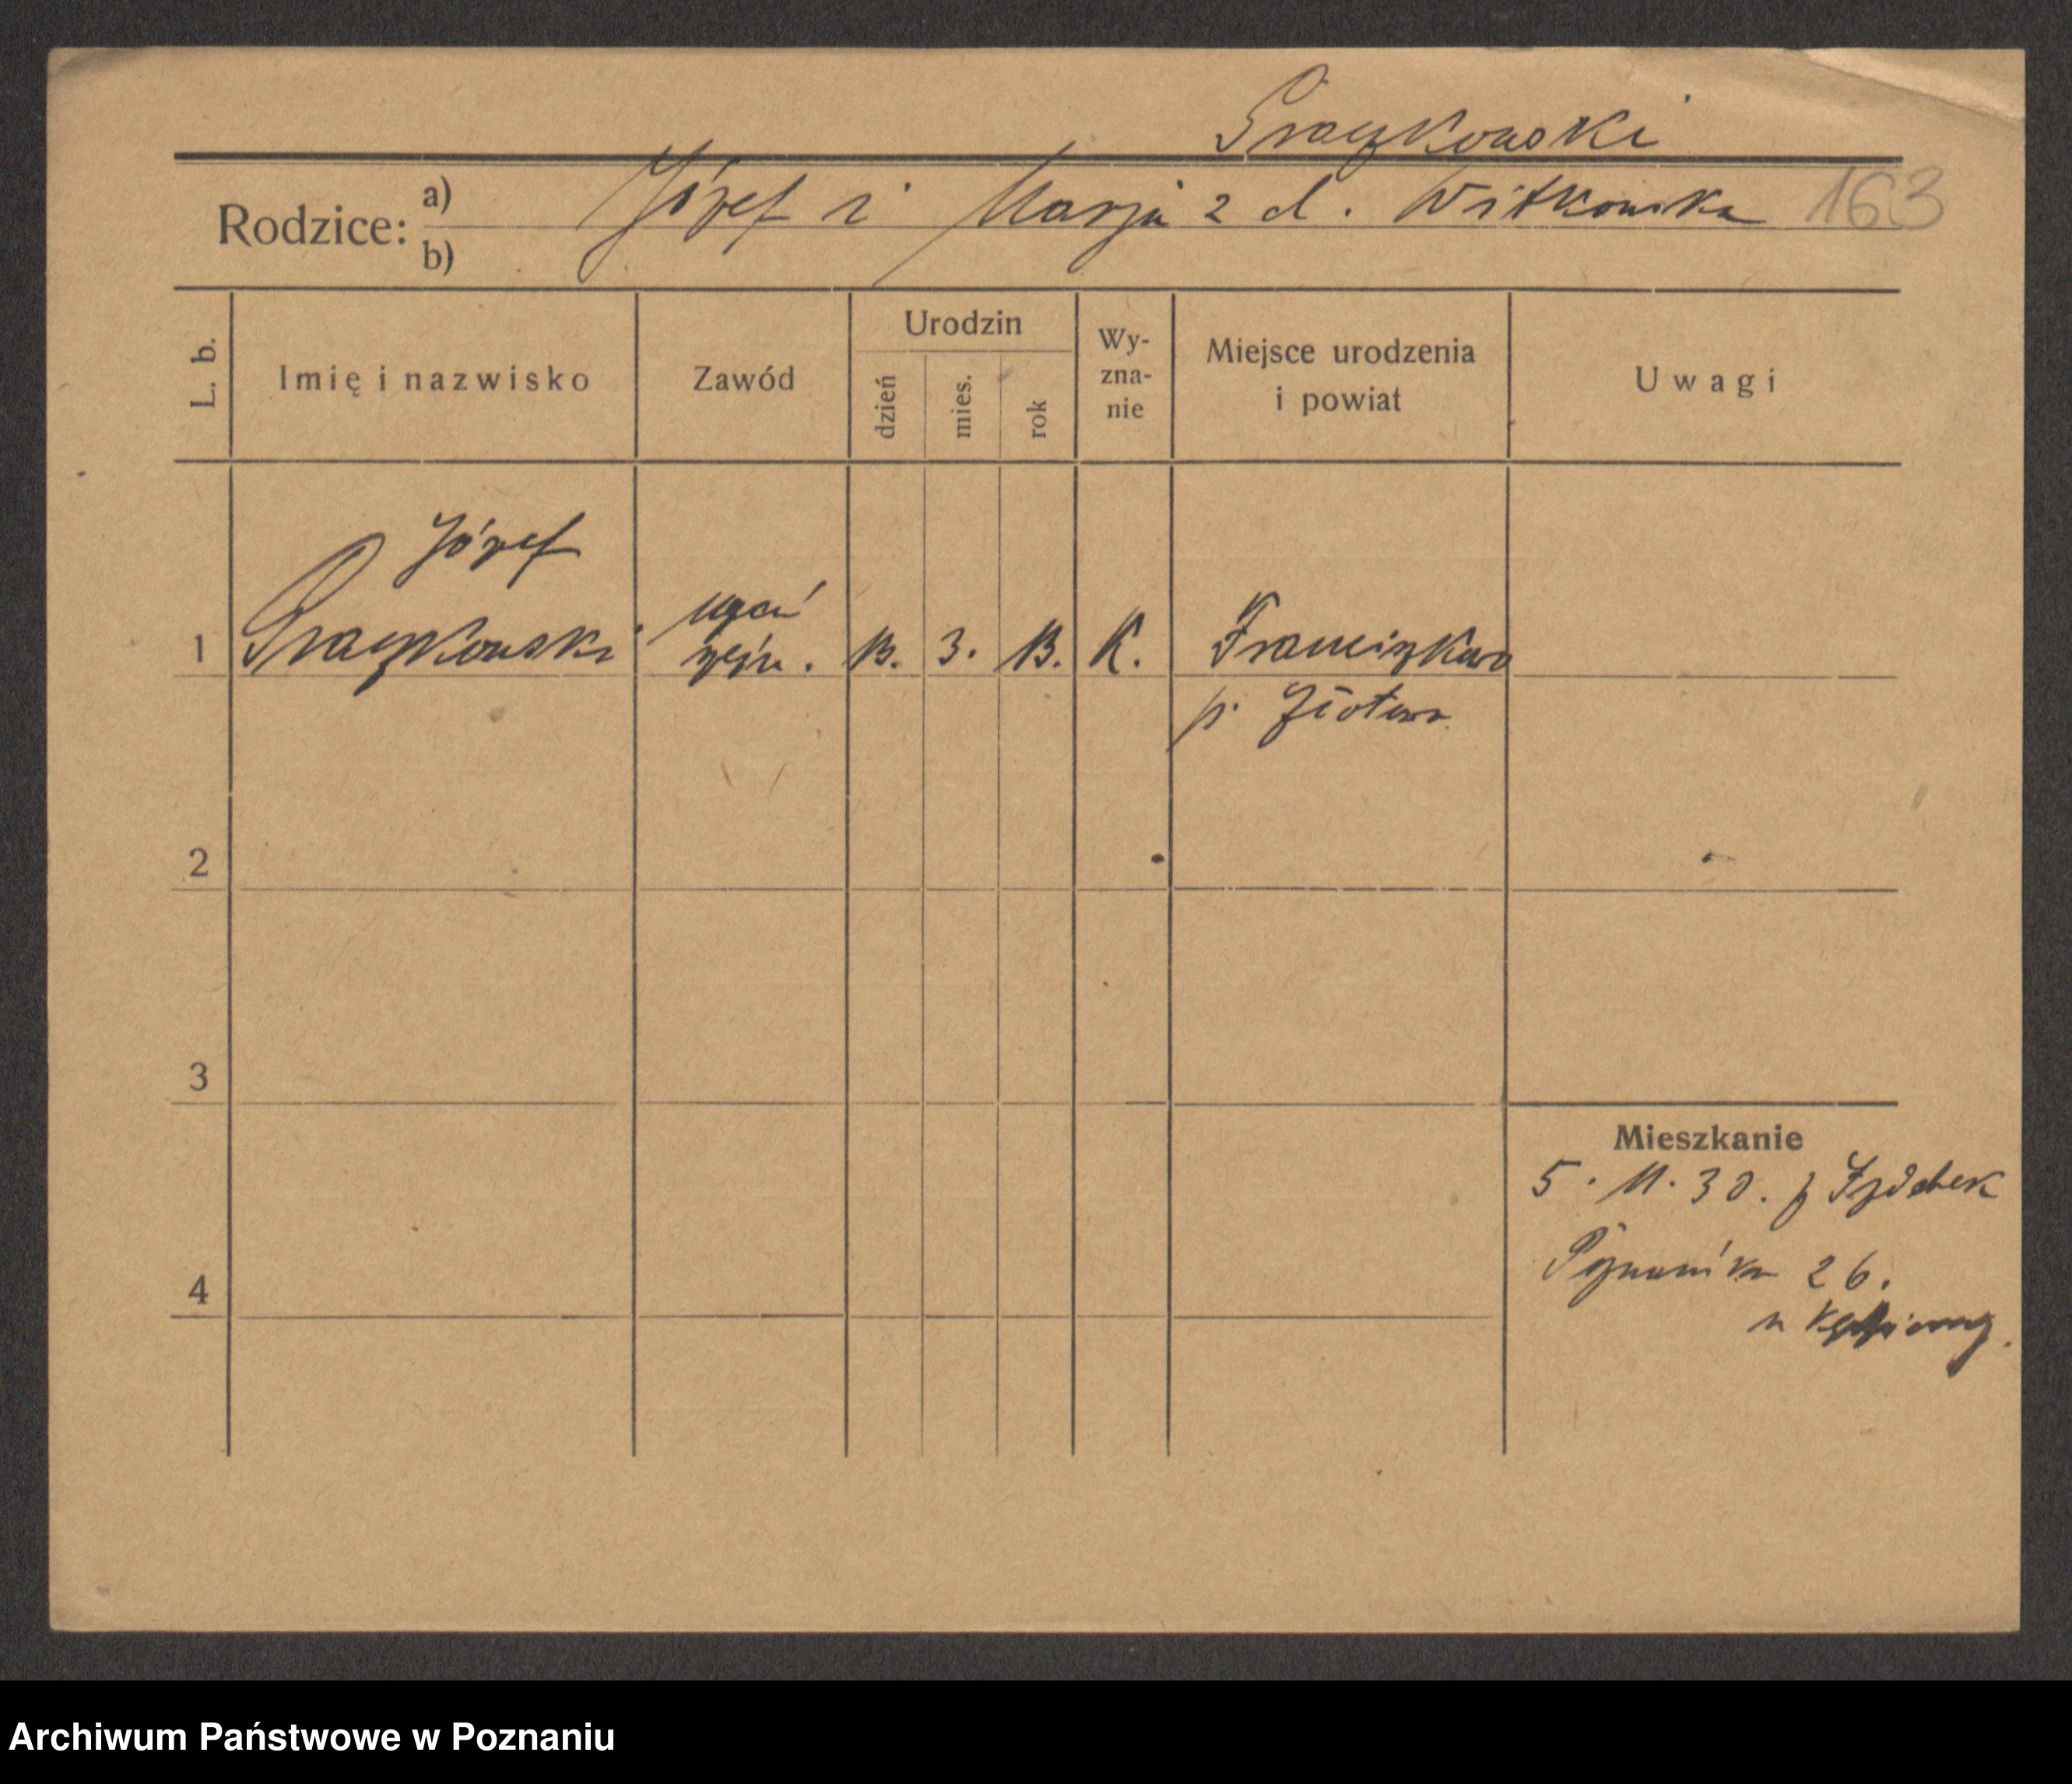 Graczkowski
Rodzice: a) Józef i Marja z d. Witkowska 163
b)
L. b.
Imię i nazwisko
Zawód
Urodzin
dzień
mies.
rok
Wy-
zna-
nie
Miejsce urodzenia
i powiat
Uwagi
Józef
uczeń
1 Graczkowski rzeźn. 13. 3. 13. K. Franciszkowo
p. Złotowo
2
3
4
Mieszkanie
5. 11. 30. z
Poznańska 26.
u
Archiwum Państwowe w Poznaniu